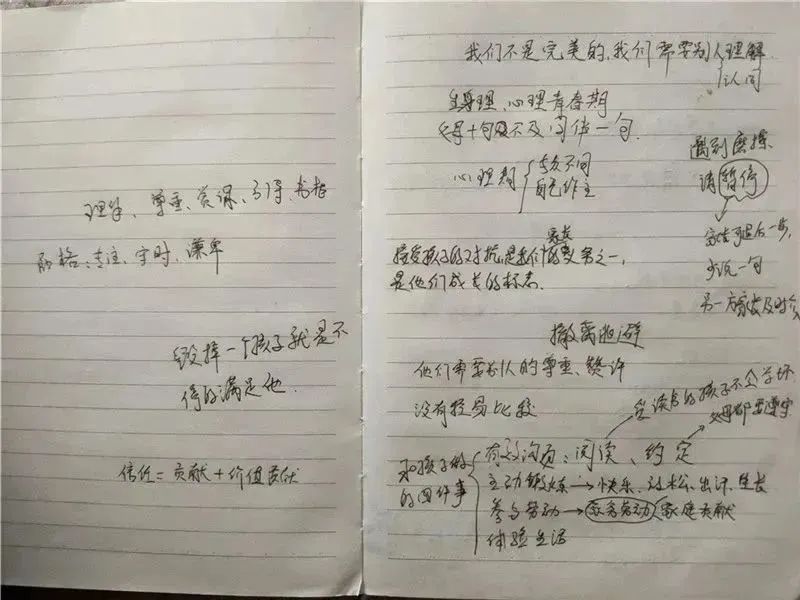 理解、尊重、赏识、引导、书格
严格:专注、守时、谦卑
毁掉一个孩子就是不
停的满足他.
信任=贡献+价值贡献
我们不是完美的,我们都要别人理解
认同
生理、心理青春期
父母十句不及同伴一句.
心理期
与众不同
自己作主
遇到磨擦
请暂停
家长可退后一步,
少说一句
另一方家长及时
家长
接受孩子的对抗是我们的义务之一,
是他们成长的标志.
撤离逃避
他们需要别人的尊重、赞许
没有轻易比较
爱读书的孩子不会学坏
父母都要遵守
和孩子做
的四件事
有效沟通:阅读、约定
主动锻炼→快乐、放松、出汗、生长
参与劳动→家务劳动 家庭贡献
体验生活